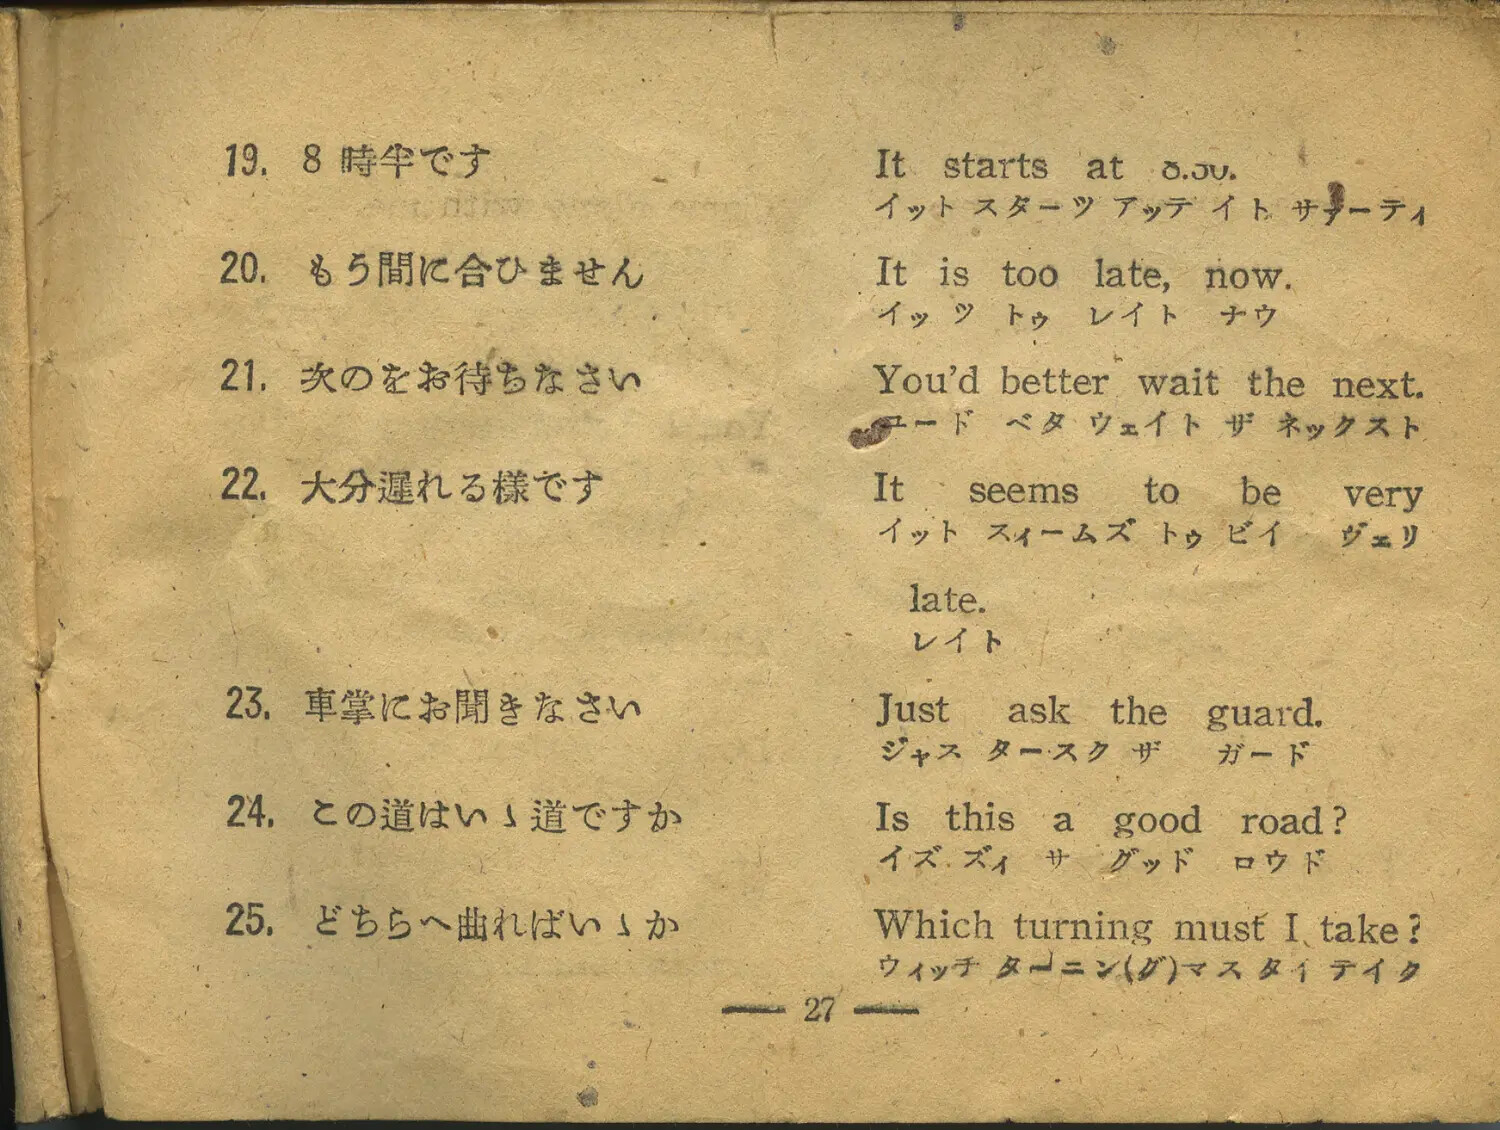 19. 8時半です
It starts at 8.30.
イット スターツ アッテ イト サァーティ
20. もう間に合ひません
It is too late, now.
イッ ツ トゥ レイト ナウ
21. 次のをお待ちなさい
You'd better wait the next.
ユード ベタ ウェイト ザ ネックスト
22. 大分遅れる様です
It seems to be very
イット スィームズ トゥ ビイ ヴェリ
late.
レイト
23. 車掌にお聞きなさい
Just ask the guard.
ジャス タースク ザ ガード
24. この道はいゝ道ですか
Is this a good road?
イズ ズィ サ グッド ロウド
25. どちらへ曲ればいゝか
Which turning must I take?
ウィッチ ターニン(グ)マス タイ テイク
27